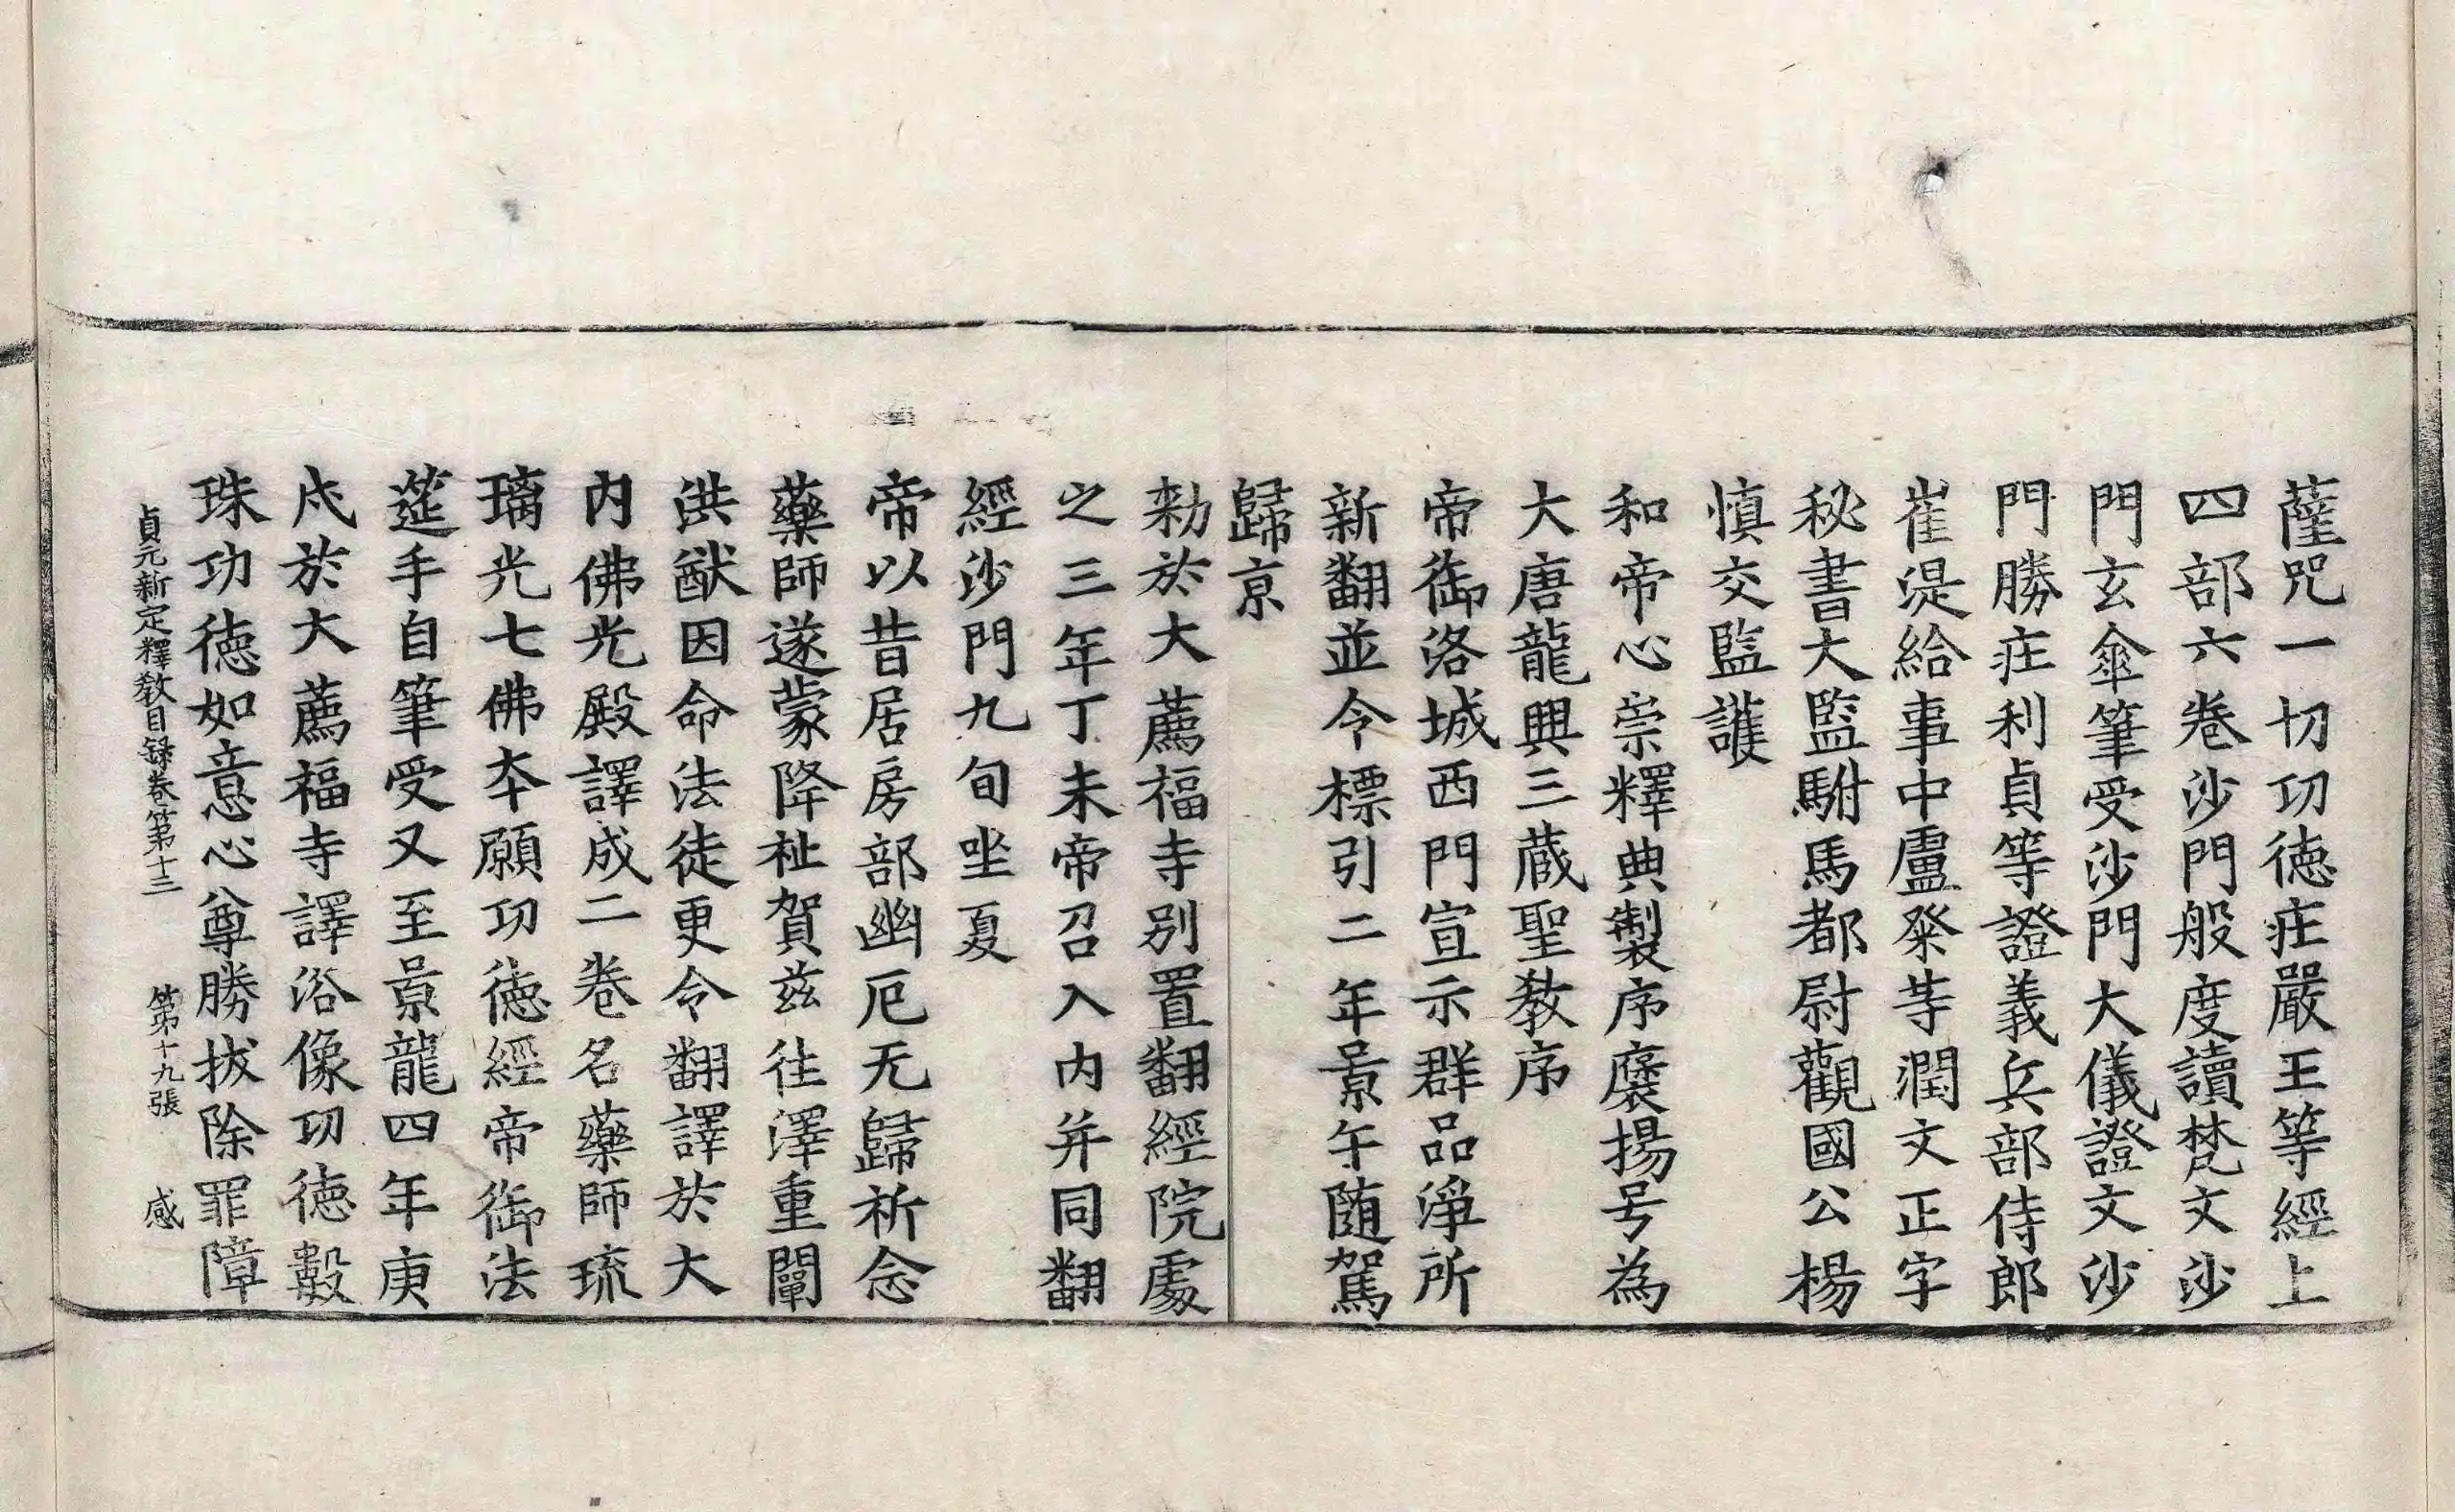 薩咒一切功徳庄嚴王等經上
四部六卷沙門般度讀梵文沙
門玄傘筆受沙門大儀證文沙
門勝庄利貞等證義兵部侍郎
崔湜給事中盧粲等潤文正字
秘書大監駙馬都尉觀國公楊
慎交監護
和帝心崇釋典製序襃揚号為
大唐龍興三蔵聖教序
帝御洛城西門宣示群品淨所
新翻並令標引二年景午随駕
歸京
勑於大薦福寺別置翻經院處
之三年丁未帝召入内并同翻
經沙門九旬坐夏
帝以昔居房部幽厄无歸祈念
藥師遂蒙降祉賀兹往澤重闡
洪猷因命法徒更令翻譯於大
内佛光殿譯成二卷名藥師琉
璃光七佛夲願功徳經帝御法
莚手自筆受又至景龍四年庚
戌於大薦福寺譯浴像功徳數
珠功徳如意心尊勝拔除罪障
貞元新定釋教目録卷第十三 第十九張 感